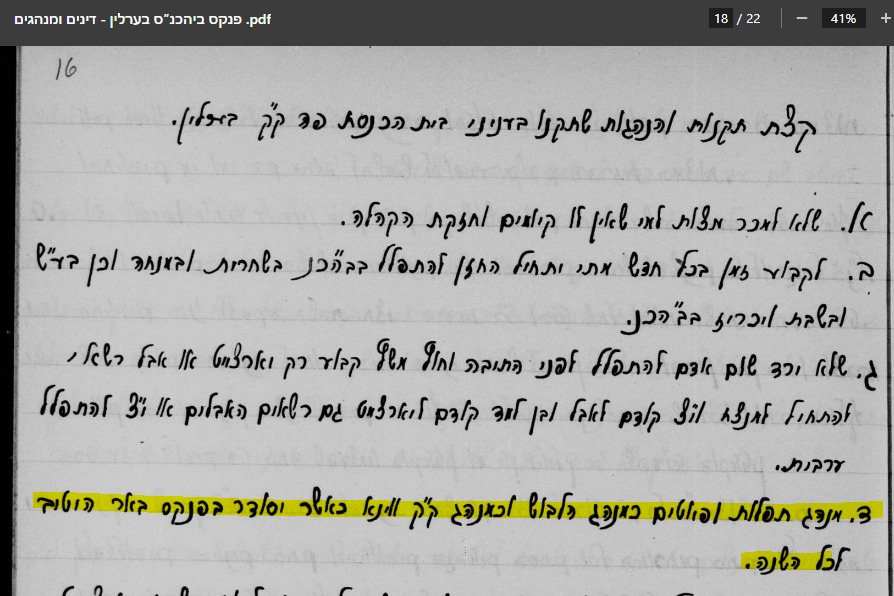 פנקס ביהכנ"ס בערלין - דינים ומנהגים .pdf
18 / 22
41%
16
קצת תקנות והנהגות שתקנו בעניני בית הכנסת פה ק"ק בערלין.
א. שלא למכר מצות למי שאין לו קיומים וחזקת הקהלה.
ב. לקבוע זמן בכל חדש מתי יתחיל החזן להתפלל בבה"כנ בשחרית ובמנחה וכן בע"ש
ובשבת ויכריז בב"הכנ.
ג. שלא ירד שום אדם להתפלל לפני התיבה קבוע רק יארצייט או אבל רשאי
להתחיל למנצח קודם לאבל ובן קודם ליארצייט גם רשאים האבלים או להתפלל
ערבית.
ד. מנהג תפלות ופיוטים כמנהג הלבוש וכמנהג ק"ק ווינא כאשר יסודר בפנקס באר היטיב
לכל השנה.